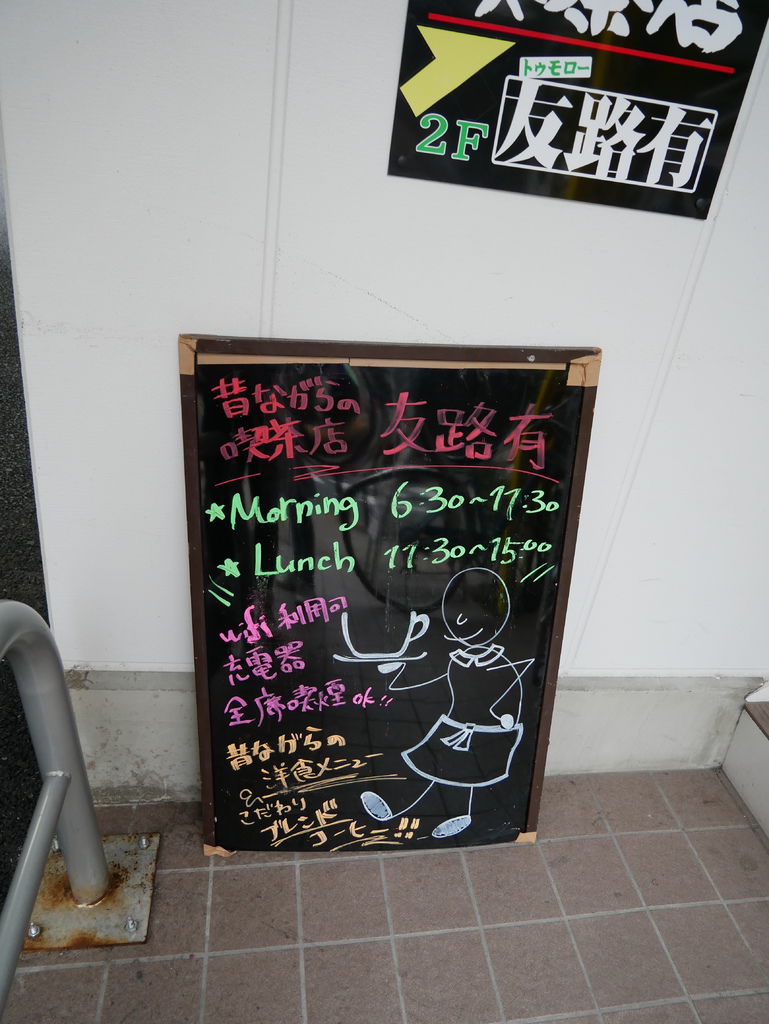 喫茶店
トゥモロー
2F 友路有
昔ながらの
喫茶店 友路有
★Morning 6:30~11:30
★Lunch 11:30~15:00
wifi 利用可
充電器
全席喫煙OK!!
昔ながらの
洋食メニュー
こだわり
ブレンド
コーヒー!!